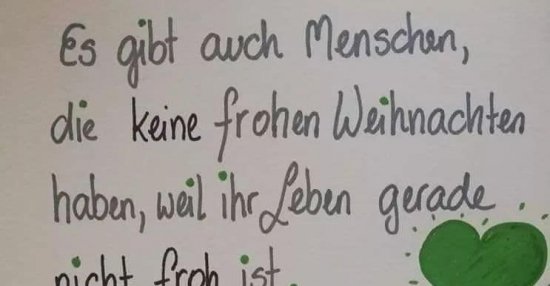 Es gibt auch Menschen,
die keine frohen Weihnachten
haben, weil ihr Leben gerade
nicht froh ist.